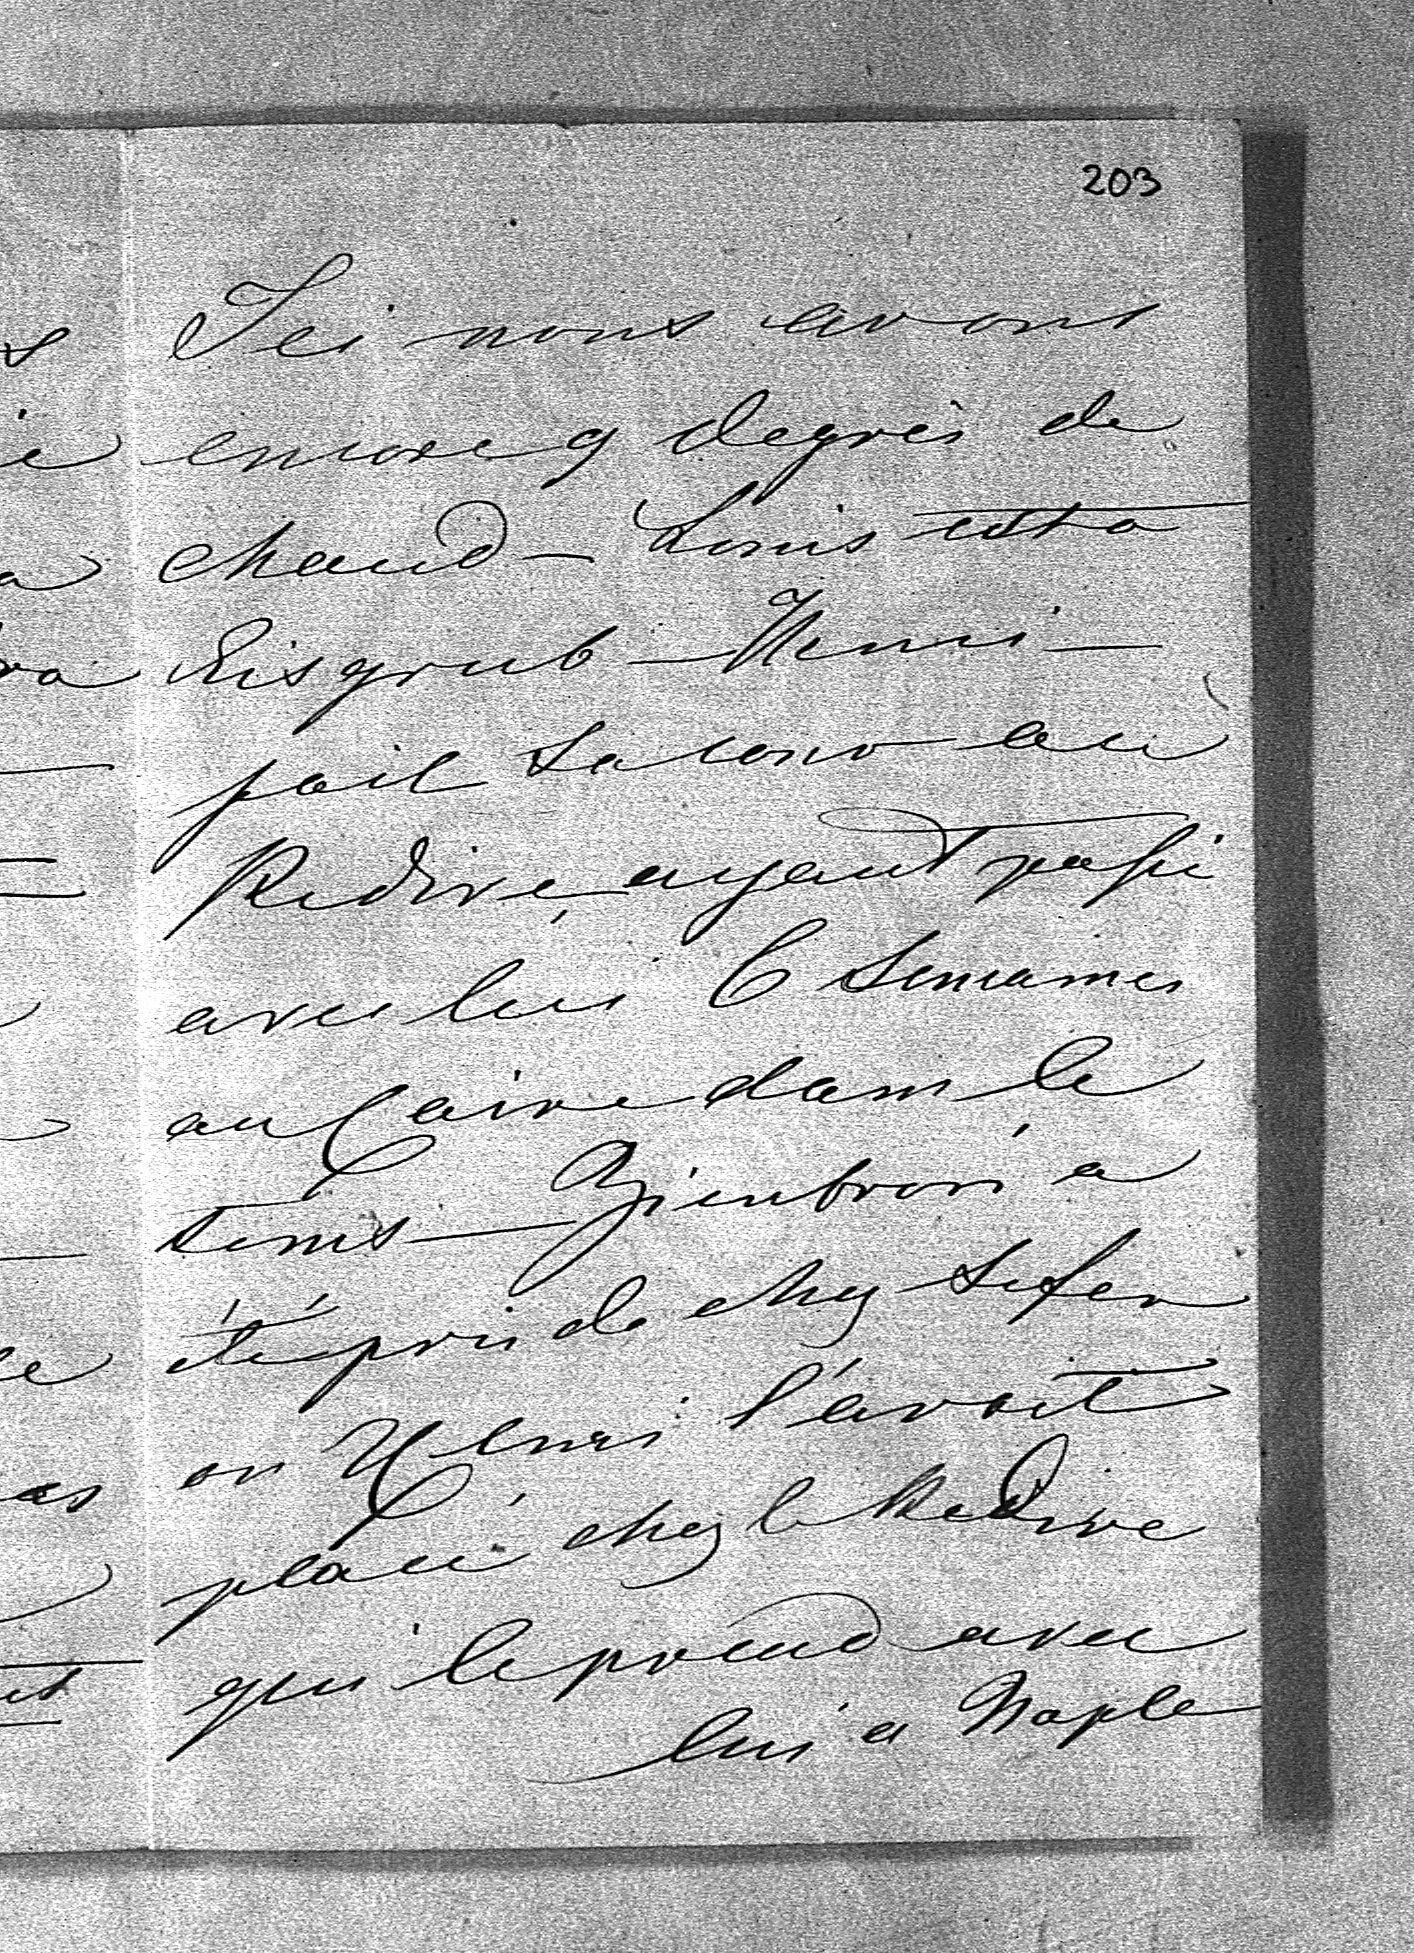 203
Ici nous avons
encore 9 degrès de
chaud – Louis est a
Eisgrub – Henri –
fait sa cour au
Kedive, ayant passé
avec lui 6 semaines
au Caire dans le
tems – a
été pris de chez
ou Henri l'avait
placé chez le Kedive
qui le prend avec
lui a Naple